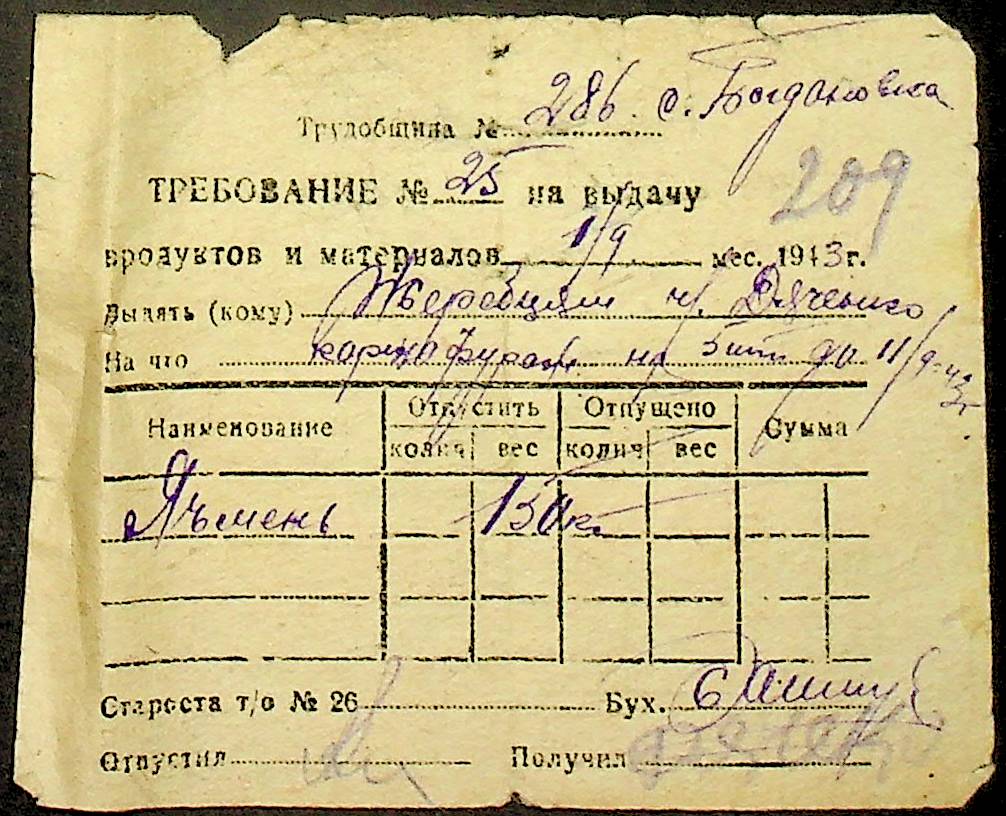 Трудобщина № 286 с. Богдановка
209
ТРЕБОВАНИЕ № 25 на выдачу
продуктов и материалов 1/9 мес. 1943 г.
Выдать (кому) Жеребцам ч. Дяченко
На что корм фураж на 5 шт до 11/9-43г.
Наименование Отпустить Отпущено Сумма
колич вес колич вес
Ячьмень 150 кг
Староста т/о № 26 Бух.
Отпустил Получил